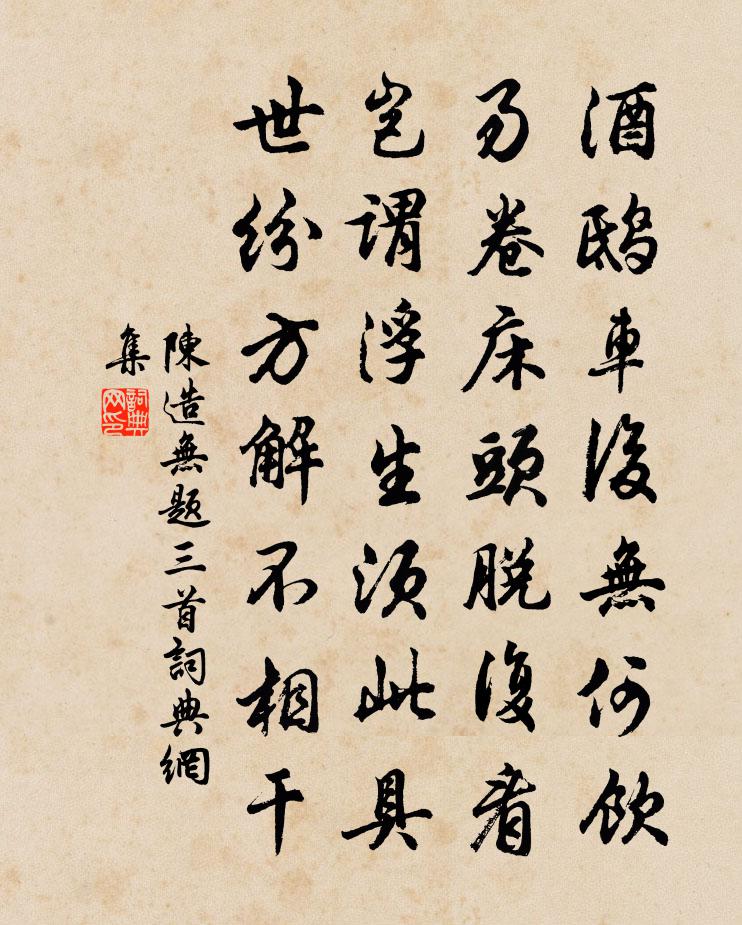 酒鴟車後無何飲
易卷床頭脫復看
豈謂浮生須此具
世紛方解不相干
陳造無題三首詞典網
集
詞典网印